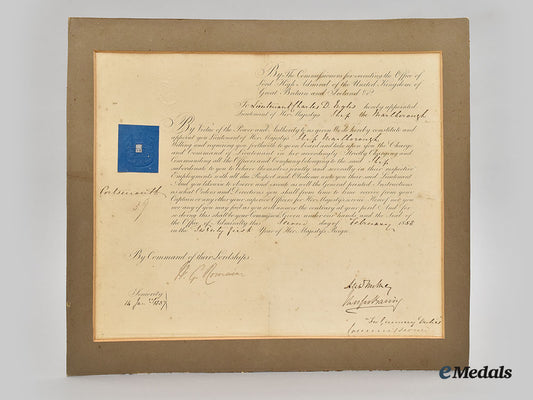 By the Commissioners for executing the Office of
Lord High Admiral of the United Kingdom of
Great Britain and Ireland &c.
To Lieutenant Charles D. hereby appointed
Lieutenant of Her Majesty's Ship the Marlborough
By Virtue of the Power and Authority to us given We do hereby constitute and
appoint you Lieutenant of Her Majesty's Ship Marlborough
Willing and requiring you forthwith to go on board and take upon you the Charge
and Command of Lieutenant in her accordingly. Strictly Charging and
Commanding all the Officers and Company belonging to the said Ship
subordinate to you to behave themselves jointly and severally in their respective
Employments with all due Respect and Obedience unto you their said Lieutenant
And you likewise to observe and execute as well the General printed Instructions
as what Orders and Directions you shall from time to time receive from your
Captain or any other your superior Officers for Her Majesty's service. Hereof nor you
nor any of you may fail as you will answer the contrary at your peril. And for
so doing this shall be your Commission. Given under our hands and the Seal of
the Office of Admiralty this day of February 1858
in the Twenty first Year of Her Majesty's Reign.
Portsmouth
59
By Command of their Lordships.
Seniority
14 Jan 1857
eMedals